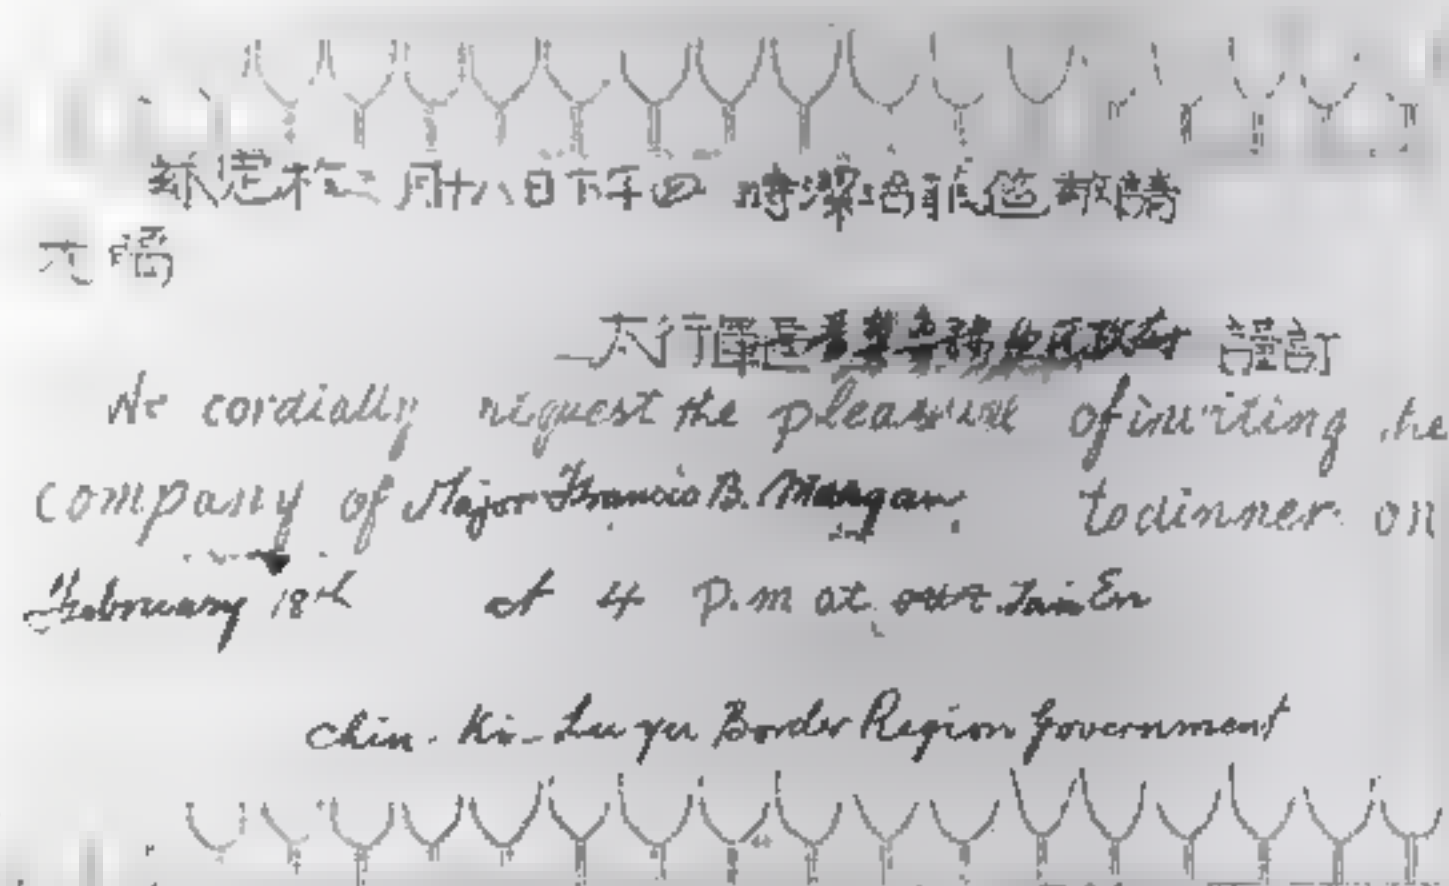 茲定於二月十八日下午四時潔治菲色敬請
光臨
太行軍區 謹訂
We cordially request the pleasure of inviting the
company of Major Francis B. Mangan to dinner on
February 18th at 4 P.m at our Tai En
Chin-Ki-Lu yu Border Region Government